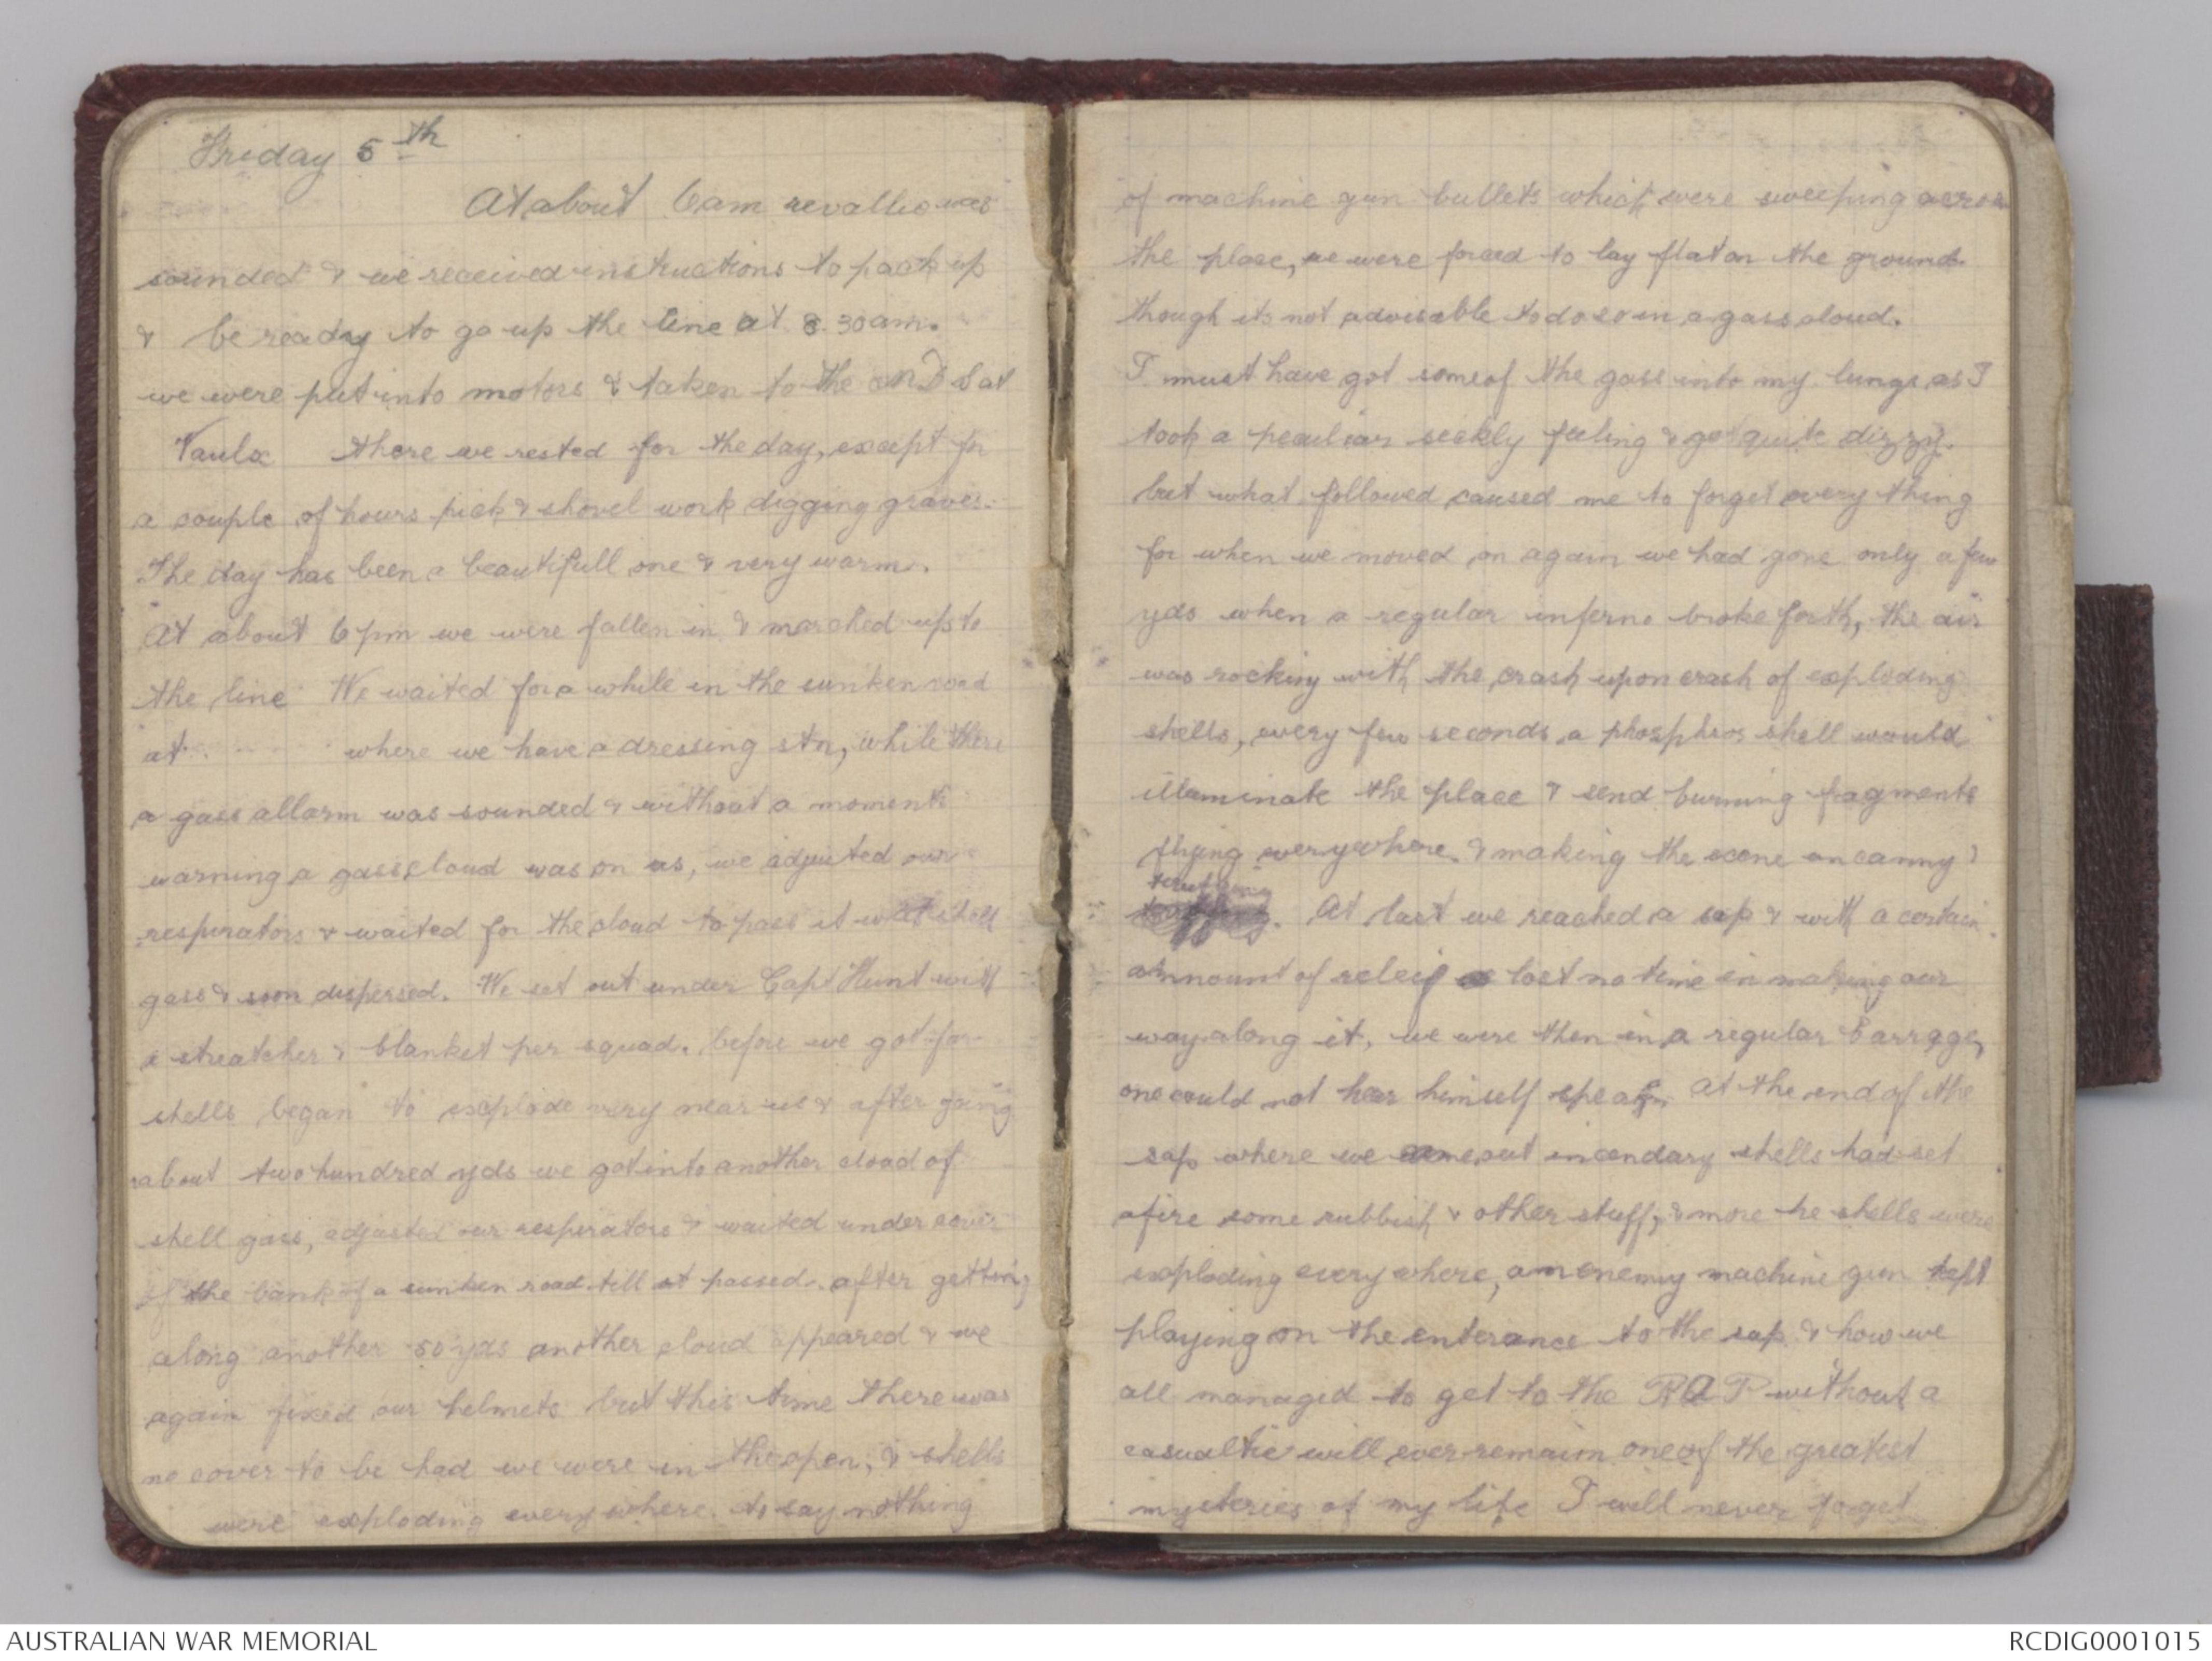 Friday 5th
At about 6am revallie was
sounded & we received instructions to pack up
& be ready to go up the line at 8.30am.
we were put into motors & taken to the at
Vaulx there we rested for the day, except for
a couple of hours pick & shovel work digging graves.
The day has been a beautifull one & very warm.
At about 6pm we were fallen in & marched up to
the line We waited for a while in the sunken road
at where we have a dressing stn, while there
a gass allarm was sounded & without a moments
warning a gass cloud was on us, we adjusted our
respirators & waited for the cloud to pass it was shell
gass & soon dispersed. We set out under Capt Hunt with
a streatcher & blanket per squad. before we got far
shells began to explode very near us & after going
about two hundred yds we got into another cloud of
shell gass, adjusted our respirators & waited under cover
of the bank of a sunken road till it passed. after getting
along another 50 yds another cloud appeared & we
again fixed our helmets but this time there was
no cover to be had we were in the open, & shells
were exploding everywhere. to say nothing
of machine gun bullets which were sweeping across
the place, we were forced to lay flat on the ground
though its not advisable to do so in a gass cloud.
I must have got some of the gass into my lungs as I
took a peculiar seekly feeling & got quite dizzy.
but what followed caused me to forget every thing
for when we moved on again we had gone only a few
yds when a regular inferno broke forth, the air
was rocking with the crash upon crash of exploding
shells, every few seconds a phosphros shell would
illuminate the place & send burning fragments
flying everywhere. & making the scene uncanny &
terrifying. At last we reached a sap & with a certain
amnount of releif lost no time in making our
way along it, we were then in a regular barrage,
one could not hear himself speak. At the end of the
sap where we came out incendary shells had set
afire some rubbish & other stuff, & more he shells were
exploding every where, an enemy machine gun kept
playing on the enterance to the sap & how we
all managed to get to the RAP without a
casualtie will ever remaim one of the greatest
mysteries of my life I will never forget
AUSTRALIAN WAR MEMORIAL
RCDIG0001015